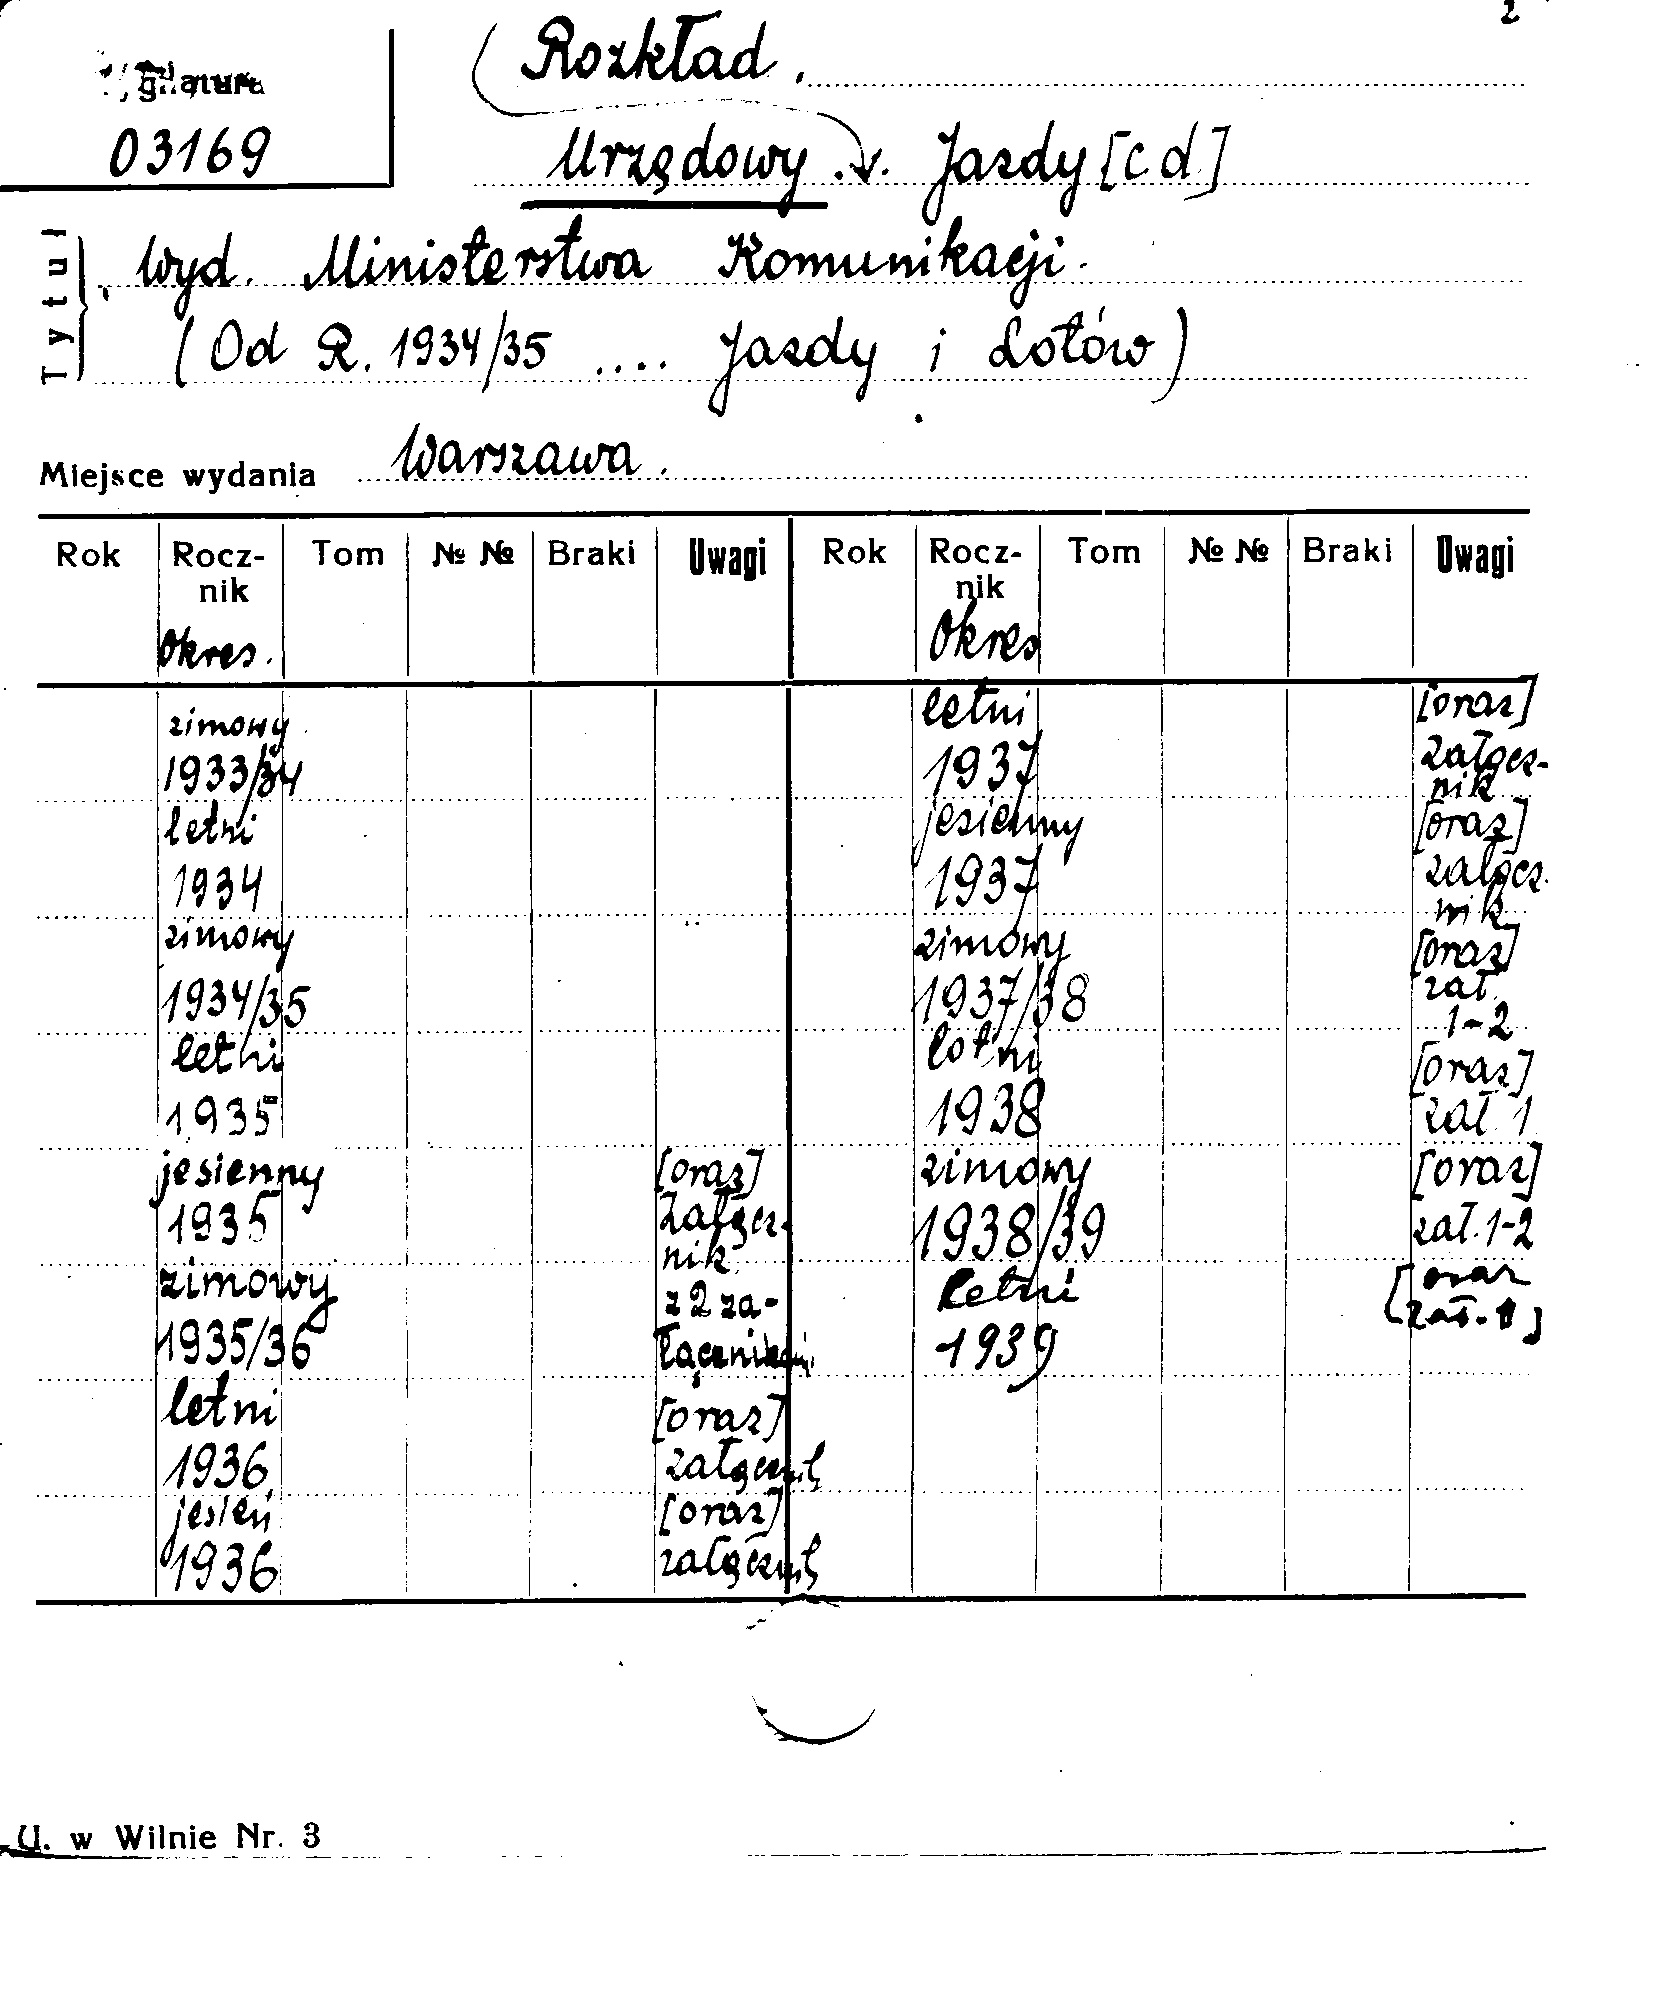 2
Sygnatura
03169
Rozkład.
Urzędowy . . Jazdy [c d]
Tytuł
, wyd. Ministerstwa Komunikacji.
(Od R. 1934/35 .... Jazdy i Lotów)
Miejsce wydania Warszawa.
Rok Rocz- Tom № № Braki Uwagi Rok Rocz- Tom № № Braki Uwagi
nik nik
Okres. Okres
zimowy
1933/34
letni
1934
zimowy
1934/35
letni
1935
jesienny [oraz]
1935 załącz-
nik
zimowy z 2 za-
1935/36 łącznikami
letni [oraz]
1936 załącznik
jesień [oraz]
1936 załącznik
letni [oraz]
1937 załącz-
nik
jesienny [oraz]
1937 załącz-
nik
zimowy [oraz]
1937/38 zał.
1-2
letni [oraz]
1938 zał 1
zimowy [oraz]
1938/39 zał. 1-2
letni [oraz
1939 zał. 1]
U. w Wilnie Nr. 3